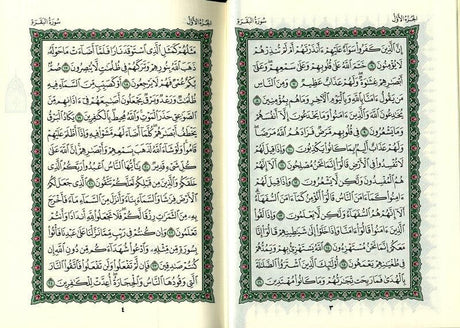 الجُزءُ الأوَّلُ سُورَةُ البَقَرَةِ
إِنَّ ٱلَّذِينَ كَفَرُوا۟ سَوَآءٌ عَلَيْهِمْ ءَأَنذَرْتَهُمْ أَمْ لَمْ تُنذِرْهُمْ
لَا يُؤْمِنُونَ ٦ خَتَمَ ٱللَّهُ عَلَىٰ قُلُوبِهِمْ وَعَلَىٰ سَمْعِهِمْ وَعَلَىٰٓ
أَبْصَٰرِهِمْ غِشَٰوَةٌ وَلَهُمْ عَذَابٌ عَظِيمٌ ٧ وَمِنَ ٱلنَّاسِ
مَن يَقُولُ ءَامَنَّا بِٱللَّهِ وَبِٱلْيَوْمِ ٱلْءَاخِرِ وَمَا هُم بِمُؤْمِنِينَ ٨
يُخَٰدِعُونَ ٱللَّهَ وَٱلَّذِينَ ءَامَنُوا۟ وَمَا يَخْدَعُونَ إِلَّآ أَنفُسَهُمْ
وَمَا يَشْعُرُونَ ٩ فِى قُلُوبِهِم مَّرَضٌ فَزَادَهُمُ ٱللَّهُ مَرَضًا
وَلَهُمْ عَذَابٌ أَلِيمٌۢ بِمَا كَانُوا۟ يَكْذِبُونَ ١٠ وَإِذَا قِيلَ لَهُمْ
لَا تُفْسِدُوا۟ فِى ٱلْأَرْضِ قَالُوٓا۟ إِنَّمَا نَحْنُ مُصْلِحُونَ ١١ أَلَآ إِنَّهُمْ
هُمُ ٱلْمُفْسِدُونَ وَلَٰكِن لَّا يَشْعُرُونَ ١٢ وَإِذَا قِيلَ لَهُمْ
ءَامِنُوا۟ كَمَآ ءَامَنَ ٱلنَّاسُ قَالُوٓا۟ أَنُؤْمِنُ كَمَآ ءَامَنَ ٱلسُّفَهَآءُ أَلَآ
إِنَّهُمْ هُمُ ٱلسُّفَهَآءُ وَلَٰكِن لَّا يَعْلَمُونَ ١٣ وَإِذَا لَقُوا۟ ٱلَّذِينَ
ءَامَنُوا۟ قَالُوٓا۟ ءَامَنَّا وَإِذَا خَلَوْا۟ إِلَىٰ شَيَٰطِينِهِمْ قَالُوٓا۟ إِنَّا
مَعَكُمْ إِنَّمَا نَحْنُ مُسْتَهْزِءُونَ ١٤ ٱللَّهُ يَسْتَهْزِئُ بِهِمْ وَيَمُدُّهُمْ
فِى طُغْيَٰنِهِمْ يَعْمَهُونَ ١٥ أُو۟لَٰٓئِكَ ٱلَّذِينَ ٱشْتَرَوُا۟ ٱلضَّلَٰلَةَ
بِٱلْهُدَىٰ فَمَا رَبِحَت تِّجَٰرَتُهُمْ وَمَا كَانُوا۟ مُهْتَدِينَ ١٦
٣
الجُزءُ الأوَّلُ سُورَةُ البَقَرَةِ
مَثَلُهُمْ كَمَثَلِ ٱلَّذِى ٱسْتَوْقَدَ نَارًا فَلَمَّآ أَضَآءَتْ مَا حَوْلَهُۥ
ذَهَبَ ٱللَّهُ بِنُورِهِمْ وَتَرَكَهُمْ فِى ظُلُمَٰتٍ لَّا يُبْصِرُونَ ١٧
صُمٌّۢ بُكْمٌ عُمْىٌ فَهُمْ لَا يَرْجِعُونَ ١٨ أَوْ كَصَيِّبٍ مِّنَ ٱلسَّمَآءِ فِيهِ
ظُلُمَٰتٌ وَرَعْدٌ وَبَرْقٌ يَجْعَلُونَ أَصَٰبِعَهُمْ فِىٓ ءَاذَانِهِم مِّنَ
ٱلصَّوَٰعِقِ حَذَرَ ٱلْمَوْتِ وَٱللَّهُ مُحِيطٌۢ بِٱلْكَٰفِرِينَ ١٩ يَكَادُ ٱلْبَرْقُ
يَخْطَفُ أَبْصَٰرَهُمْ كُلَّمَآ أَضَآءَ لَهُم مَّشَوْا۟ فِيهِ وَإِذَآ أَظْلَمَ عَلَيْهِمْ
قَامُوا۟ وَلَوْ شَآءَ ٱللَّهُ لَذَهَبَ بِسَمْعِهِمْ وَأَبْصَٰرِهِمْ إِنَّ ٱللَّهَ عَلَىٰ
كُلِّ شَىْءٍ قَدِيرٌ ٢٠ يَٰٓأَيُّهَا ٱلنَّاسُ ٱعْبُدُوا۟ رَبَّكُمُ ٱلَّذِى
خَلَقَكُمْ وَٱلَّذِينَ مِن قَبْلِكُمْ لَعَلَّكُمْ تَتَّقُونَ ٢١ ٱلَّذِى جَعَلَ لَكُمُ
ٱلْأَرْضَ فِرَٰشًا وَٱلسَّمَآءَ بِنَآءً وَأَنزَلَ مِنَ ٱلسَّمَآءِ مَآءً فَأَخْرَجَ
بِهِۦ مِنَ ٱلثَّمَرَٰتِ رِزْقًا لَّكُمْ فَلَا تَجْعَلُوا۟ لِلَّهِ أَندَادًا وَأَنتُمْ
تَعْلَمُونَ ٢٢ وَإِن كُنتُمْ فِى رَيْبٍ مِّمَّا نَزَّلْنَا عَلَىٰ عَبْدِنَا فَأْتُوا۟
بِسُورَةٍ مِّن مِّثْلِهِۦ وَٱدْعُوا۟ شُهَدَآءَكُم مِّن دُونِ ٱللَّهِ إِن
كُنتُمْ صَٰدِقِينَ ٢٣ فَإِن لَّمْ تَفْعَلُوا۟ وَلَن تَفْعَلُوا۟ فَٱتَّقُوا۟ ٱلنَّارَ
ٱلَّتِى وَقُودُهَا ٱلنَّاسُ وَٱلْحِجَارَةُ أُعِدَّتْ لِلْكَٰفِرِينَ ٢٤
٤